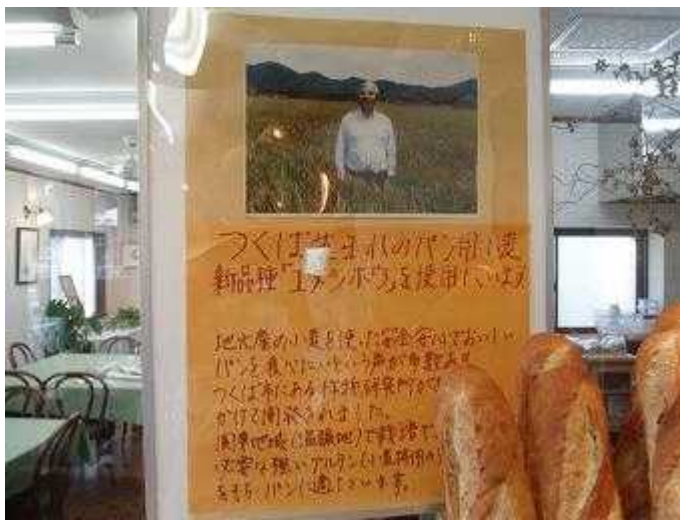 つくば生まれのパン用小麦
新品種「ユメシホウ」を使用しています
地元産の小麦を使った安全安心でおいしい
パンを食べたいという声が多数あり
つくば市にある作物研究所が
かけて開発されました。
関東地域(温暖地)で栽培で
グルテン(小麦特有の
をもち、パンに適しています。